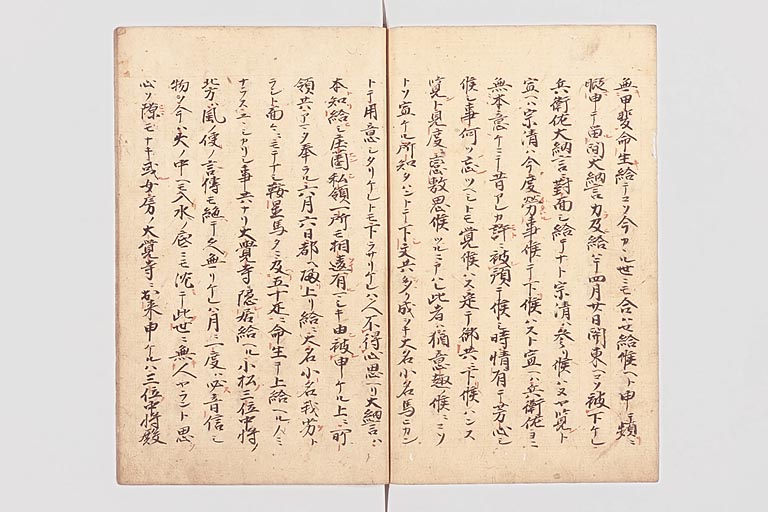 無甲斐命生給テコソ今カヽル世ニモ合ハセ給候ヘト申
暇申テ出間大納言力及給ハテ四月廿日関東ヘコソ被下ケレ
兵衛佐大納言ニ対面シ給テナト宗清ハ参リ候ハヌヤ覧ト
宣ハ宗清ハ今度労事候テ下候ハスト宣ヘハ兵衛佐ヨニ
無本意ケニテ昔アレカ許ニ被預テ候シ時情有テ芳心シ
候シ事何ツ忘ツヘシトモ覚候ハス定テ御共ニ下候ハンス
覧ト見度恋敷思候ツルニアハレ此者ハ猶意趣候ニコソ
トソ宣ケル所知タハントテ下文共多ク成リテ大名小名馬ヒカン
トテ用意シタリケレトモ下ラサリケレハ人不得心思ヘリ大納言ハ
本知給シ庄園私領一所モ相違有マシキ由被申ケル上ニ所
領共アマタ奉ラル六月六日都ヘ帰上リ給ニ大名小名我劣ラシト
面々ニモテナシ鞍置馬タニモ及五十疋ニ命生テ上給ヘル人ニモ
ナラスユヽシカリシ事共ナリ大覚寺ニ隠居給ヘル小松三位中将ノ
北方ハ風ノ便ノ言伝モ絶テ久無リケレハ月ニ一度ハ必音信シ
物ソトテ火ノ中ニモ入水ノ底ニモ沈テ此世ニ無人ヤラント思
心ソ隙モナキ或女房ノ大覚寺ニ来申ケルハ三位中将殿